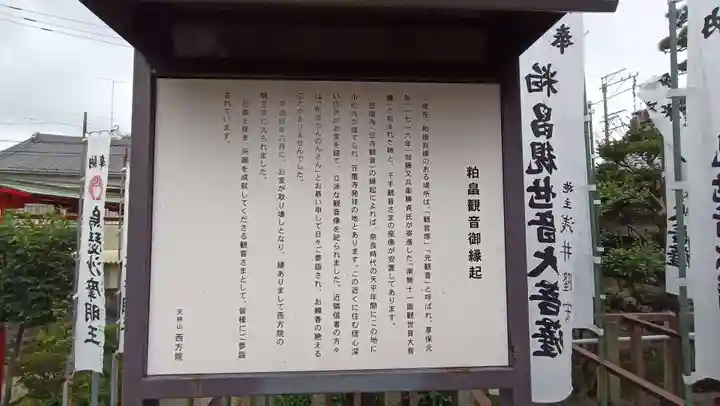 粕畠観音御縁起
現在、粕畠貝塚のある場所は、「観音塚」「元観音」と呼ばれ、享保元
年(一七一六年)加藤又兵衛勝貞氏が寄進した「南無十一面観世音大菩
薩」と刻まれた碑と、千手観音さまの座像が安置してあります。
笠覆寺(笠寺観音)の縁起によれば、奈良時代の天平年間にこの地に
小松寺が建てられ、笠覆寺発祥の地とあります。この近くに住む信心深
い住民がお堂を建て、立派な観音像を祀られました。近隣信者の方々
は「粕畠かんのんさん」とお慕い申して日々ご参詣され、お線香の絶える
ことがありませんでした。
平成四年六月に、お堂が取り壊しとなり、縁ありまして西方院の
明王堂に入られました。
お姿を拝き、所願を成就してくださる観音さまとして、皆様にご参詣
されています。
天林山 西方院
奉 粕畠観世音大菩薩
施主 浅井隆安
奉納 烏瑟沙摩明王